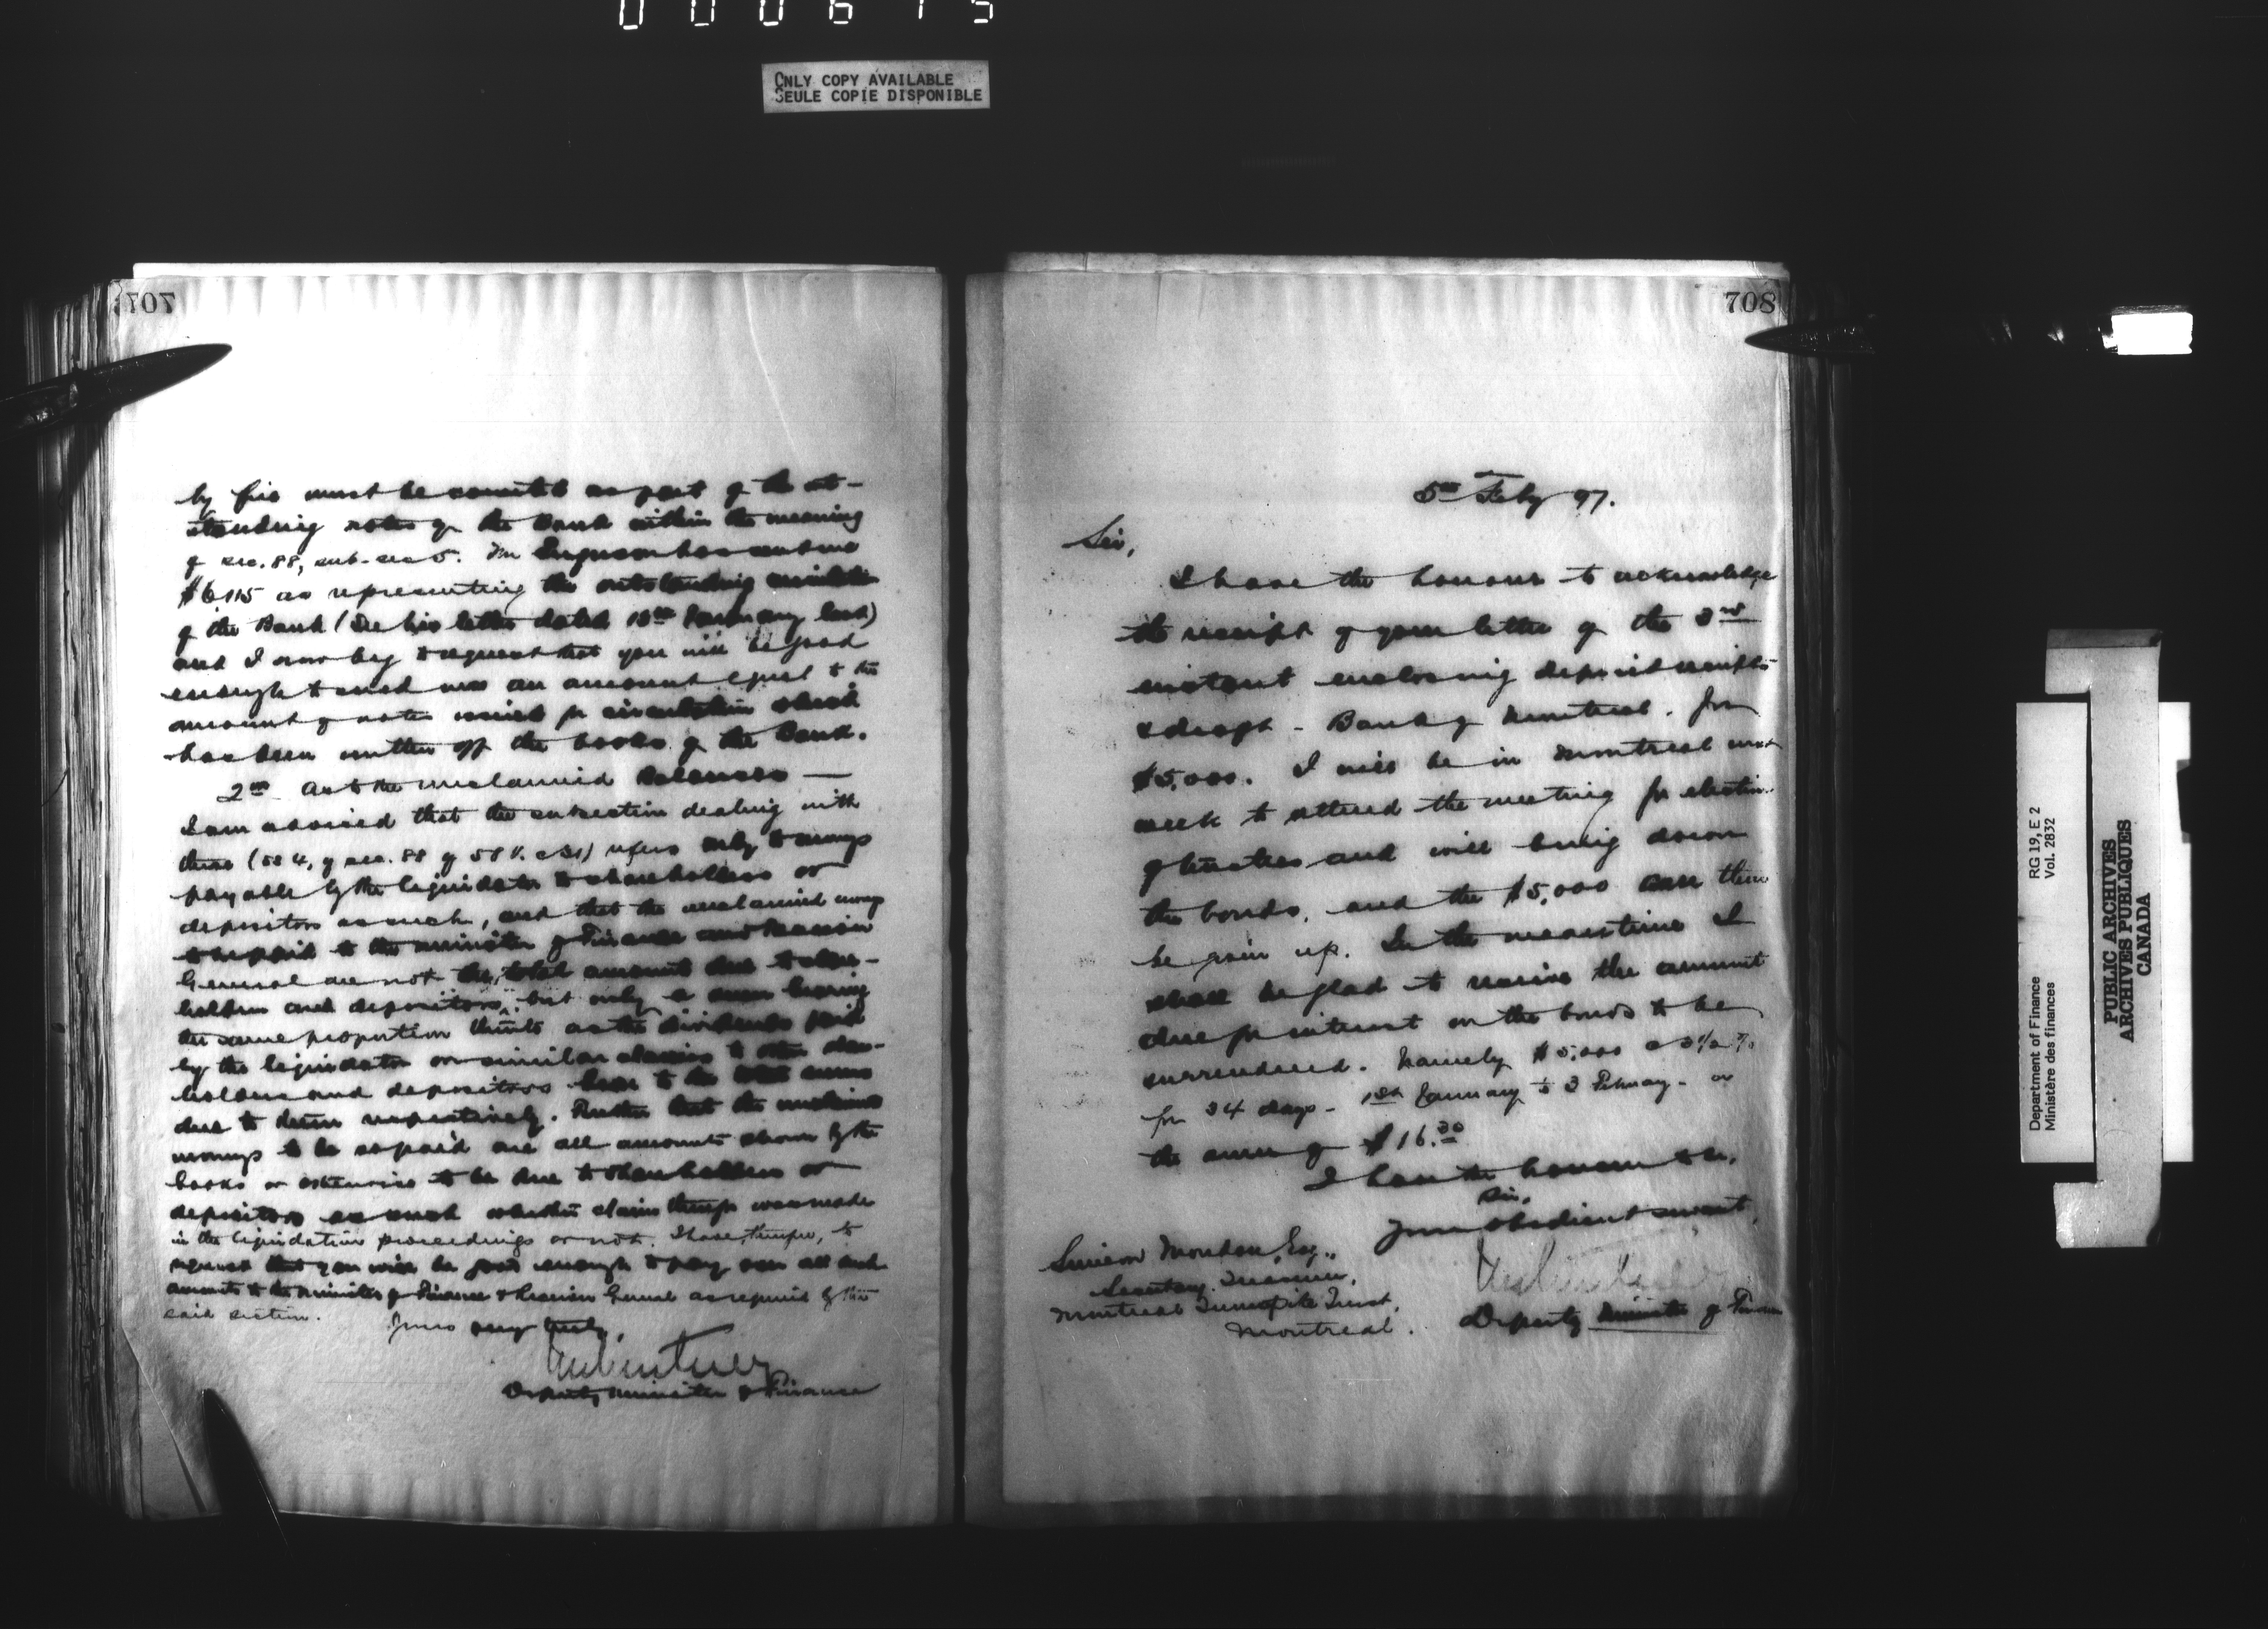 000615
ONLY COPY AVAILABLE
SEULE COPIE DISPONIBLE
707
by fire must be counted as part of the out-
standing notes of the Bank within the meaning
of sec. 88, sub-sec 5. Mr Ferguson has sent me
$6115 as representing the outstanding circulation
of the Bank (See his letter dated 18th January last)
and I now beg to request that you will be good
enough to send me an amount equal to the
amount of notes issued for circulation which
has been written off the books of the Bank.
2nd As to the unclaimed Balances —
I am advised that the subsection dealing with
these (ss 4, of sec. 88 of 53 V. c 31) refers only to moneys
payable by the liquidator to shareholders or
depositors as such, and that the unclaimed moneys
to be paid to the Minister of Finance and Receiver
General are not the total amount due to share-
holders and depositors, but only a sum bearing
the same proportion thereto as the dividends paid
by the liquidator on similar claims to other share-
holders and depositors bear to the total sums
due to them respectively. Further that the unclaimed
moneys to be so paid are all amounts shown by the
books or otherwise to be due to shareholders or
depositors as such whether claim therefor was made
in the liquidation proceedings or not. I have, therefore, to
request that you will be good enough to pay over all such
amounts to the Minister of Finance & Receiver General as required by the
said section.
Yours very truly,
Deputy Minister of Finance
708
5th Feby 97.
Sir,
I have the honour to acknowledge
the receipt of your letter of the 3rd
instant enclosing deposit receipts
& draft - Bank of Montreal. for
$5,000. I will be in Montreal next
week to attend the meeting for election
of trustees and will bring down
the bonds, and the $5,000 can then
be given up. In the meantime I
shall be glad to receive the amount
due for interest on the bonds to be
surrendered. Namely $5,000 @ 3½ %
for 34 days - 1st January to 3 February - or
the sum of $16.30
I have the honour to be,
Sir,
Your obedient servant,
Simeon Mondou, Esq.,
Secretary Treasurer,
Montreal Turnpike Trust,
Montreal.
Deputy Minister of Finance
Department of Finance
Ministère des finances
RG 19, E 2
Vol. 2832
PUBLIC ARCHIVES
ARCHIVES PUBLIQUES
CANADA